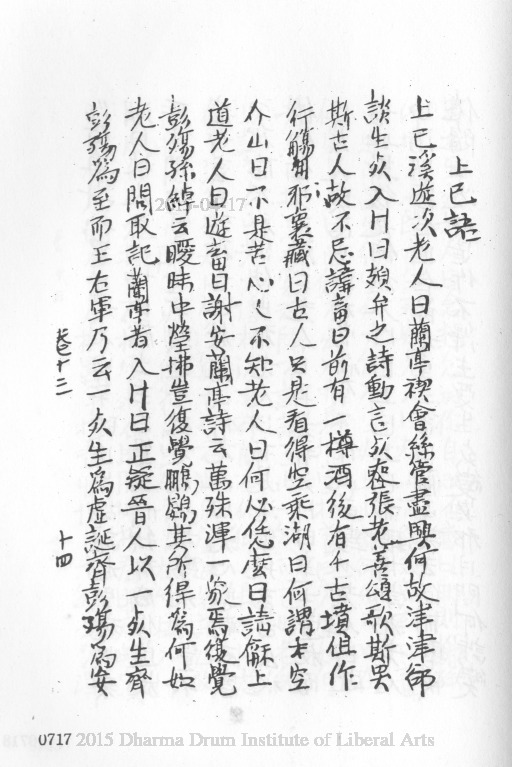 上巳語
上巳溪遊次老人曰蘭亭禊會絲管盡興何故津津郤
談生死入廿曰頍弁之詩動言死喪張老善頌歌哭
斯古人故不忌諱畜曰前有一樽酒後有千古墳但作
行觴曰襄藏曰古人只是看得空乘湖曰何謂本空
介山曰不是苦心人不知老人曰何必恁麼曰請龢上
道老人曰遊畜曰謝安蘭亭詩云萬殊渾一象焉復覺
彭殤孫綽云曖昧中瑩拂豈復覺鵬鷃其所得為何如
老人曰問取記蘭亭者入廿曰正疑晉人以一死生齊
彭殤為至而王右軍乃云一死生為虛誕齊彭殤為妄
卷十三
十四
0717 2015 Dharma Drum Institute of Liberal Arts